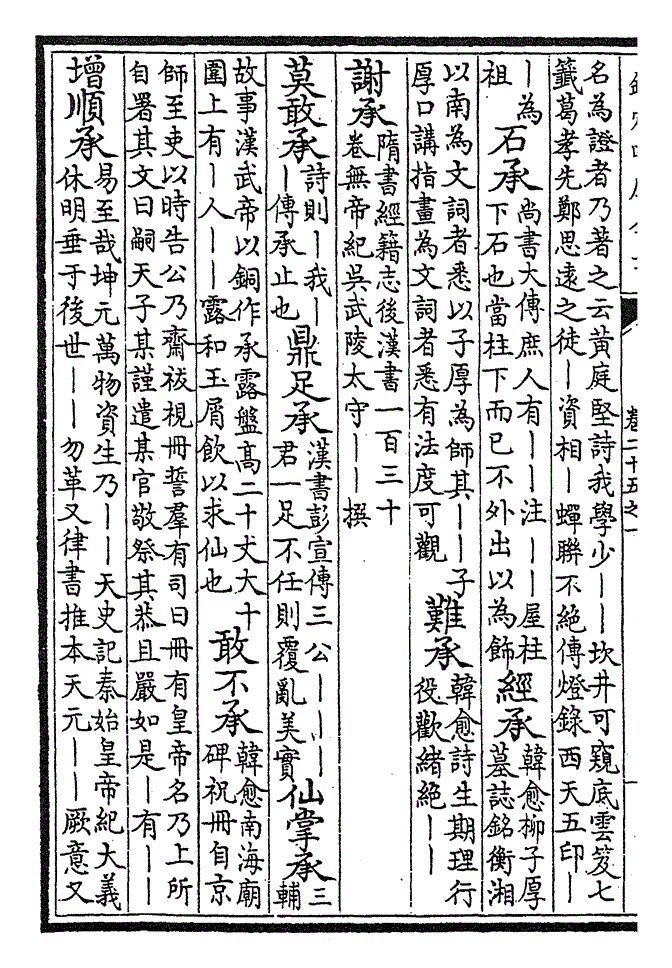 卷二十五之一
名為證者乃著之云黃庭堅詩我學少丨丨坎井可窺底雲笈七
籤葛孝先鄭思遠之徒丨資相丨蟬聯不絶傳燈錄西天五印丨
丨為
祖
石承
尚書大傳庶人有丨丨注丨丨屋柱
下石也當柱下而已不外出以為飾
經承
韓愈柳子厚
墓誌銘衡湘
以南為文詞者悉以子厚為師其丨丨子
厚口講指畫為文詞者悉有法度可觀
難承
韓愈詩生期理行
役歡緒絶丨丨
謝承
隋書經籍志後漢書一百三十
卷無帝紀吳武陵太守丨丨撰
莫敢承
詩則丨我丨
丨傳承止也
鼎足承
漢書彭宣傳三公丨丨丨
君一足不任則覆亂美實
仙掌承
三
輔
故事漢武帝以銅作承露盤高二十丈大十
圍上有丨人丨丨露和玉屑飲以求仙也
敢不承
韓愈南海廟
碑祝冊自京
師至吏以時告公乃齋祓視冊誓羣有司曰冊有皇帝名乃上所
自署其文曰嗣天子某謹遣某官敬祭其恭且嚴如是丨有丨丨
增順承
易至哉坤元萬物資生乃丨丨天史記秦始皇帝紀大義
休明垂于後世丨丨勿革又律書推本天元丨丨厥意又